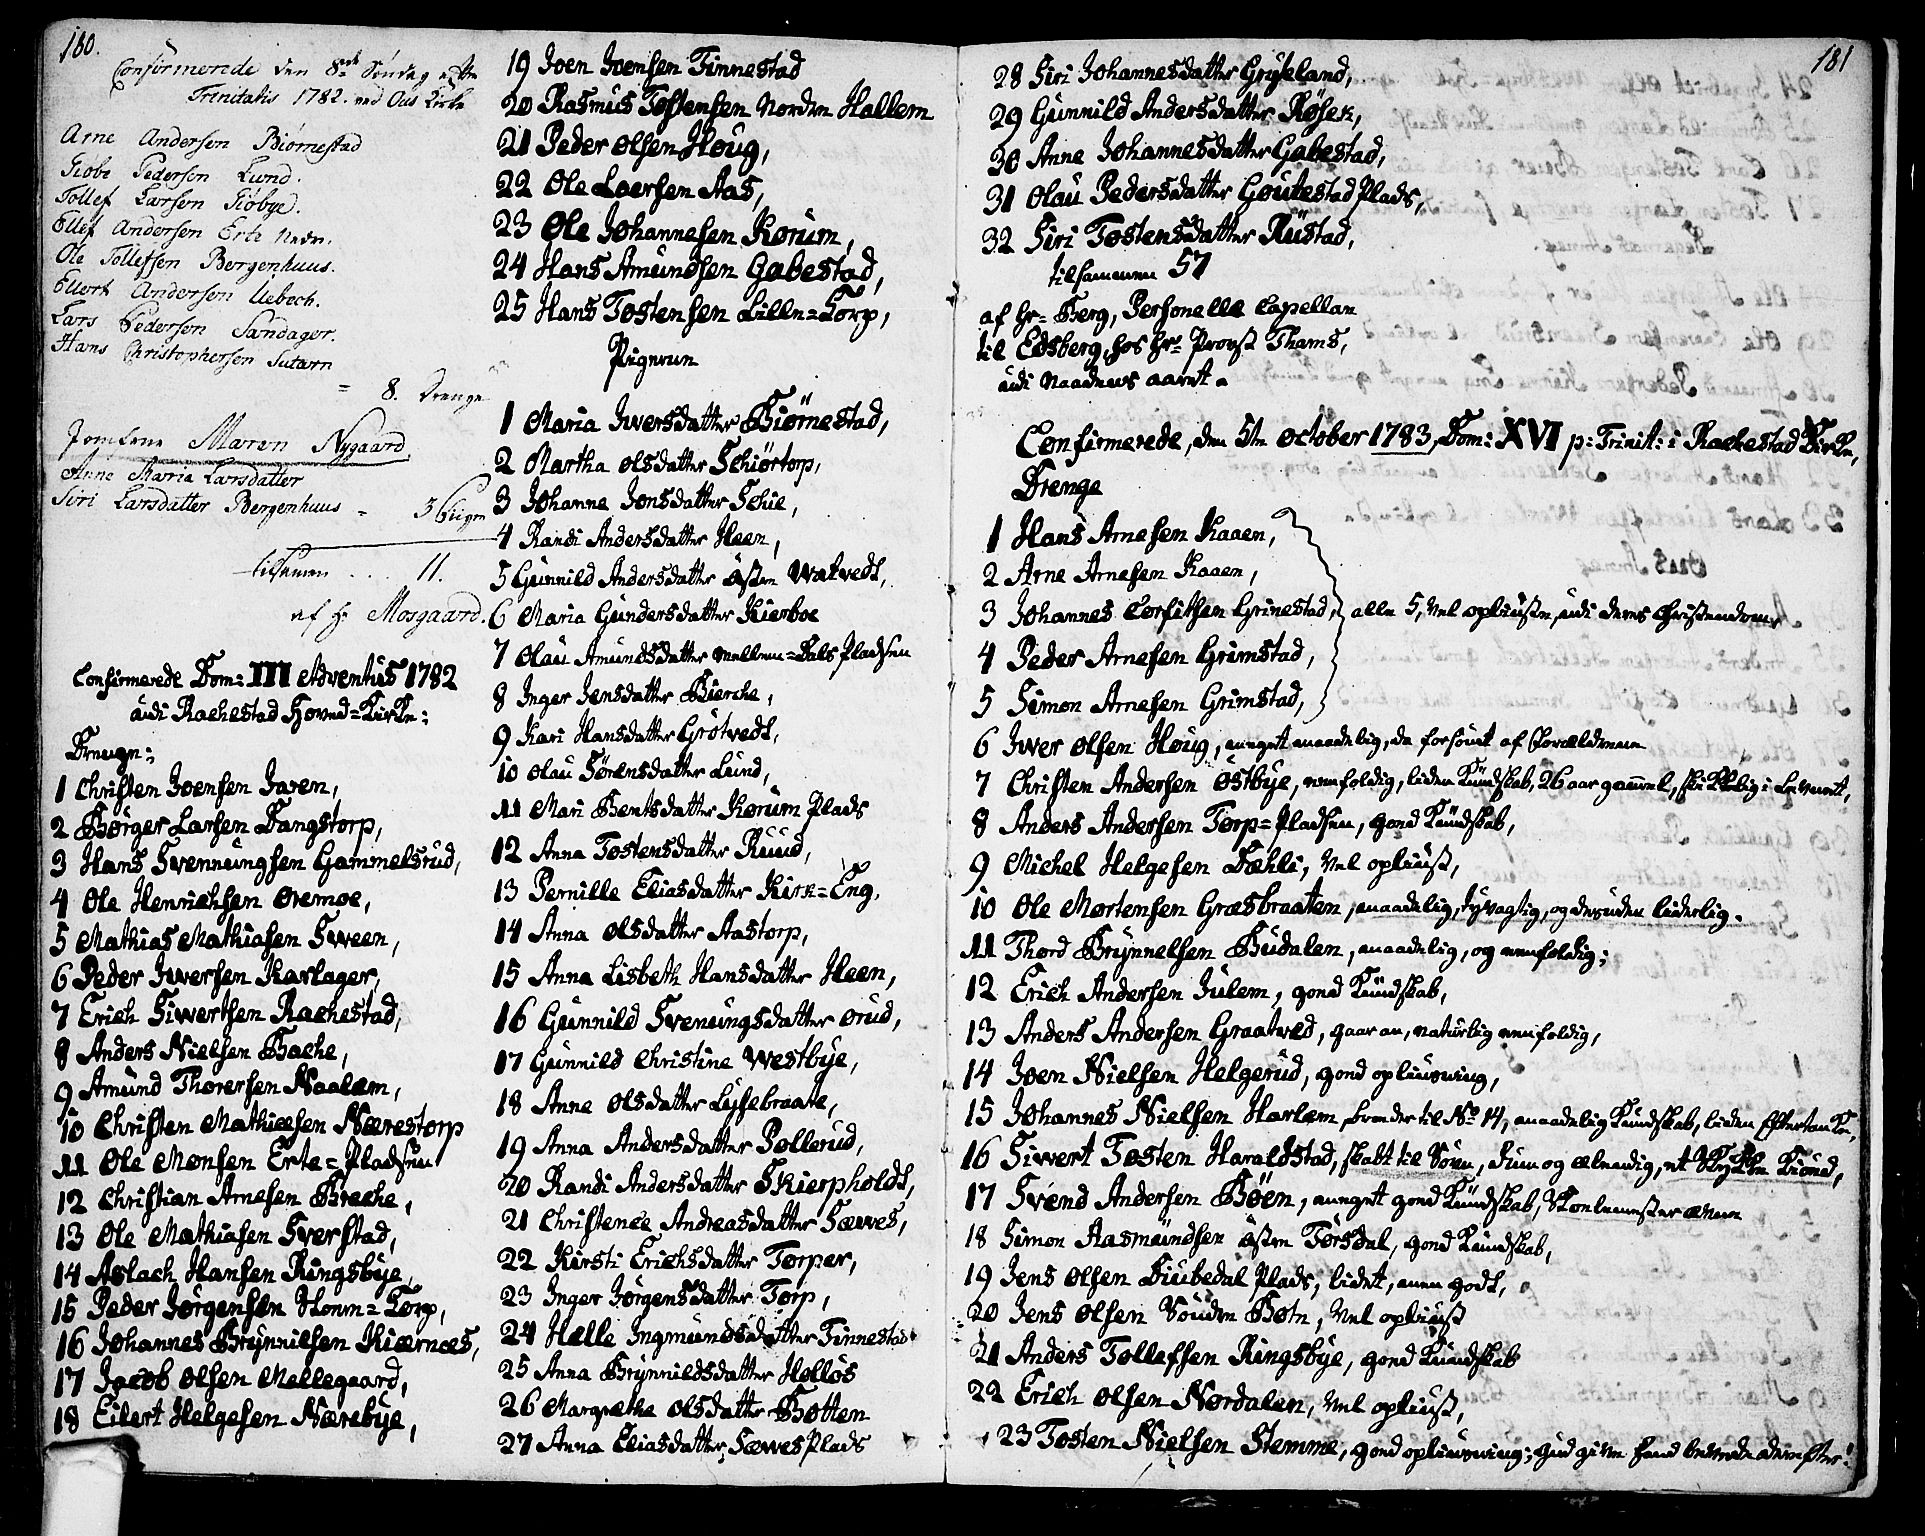 180.
Confirmerede den 8de Søndag efter
Trinitatis 1782. ved Ous Kirke
Arne Andersen Biørnestad
Giøbe Pedersen Lund.
Tollef Larsen Giøbye.
Ellef Andersen Erte Nedr.
Ole Tollefsen Bergenhuus.
Ellert Andersen Ueboch.
Lars Pedersen Sandager.
Hans Christophersen Sutarn
= 8. Drenge
Jomfrue Maren Nygaard
Anne Maria Larsdatter
Siri Larsdatter Bergenhuus = 3 Piigen
tilsamen .... 11.
af Hr Mosgaard.
Confirmerede Dom: III Adventus 1782
udi Rachestad Hoved=Kirke:
Drenge:
1 Christen Joensen Haren,
2 Børger Larsen Dangstorp,
3 Hans Svenningsen Gammelsrud,
4 Ole Henrichsen Oremoe,
5 Mathias Mathiasen Sween,
6 Peder Iwersen Karlager,
7 Erich Siwertsen Rachestad,
8 Anders Nielsen Bache,
9 Amund Thorersen Naalem,
10 Christen Mathiesen Nærestorp
11 Ole Monsen Erte=Pladsen
12 Christian Arnesen Breche,
13 Ole Mathiasen Sverstad,
14 Aslach Hansen Ringsbye,
15 Peder Jørgensen Homm=Torp,
16 Johannes Brynnilsen Kiærnæs,
17 Jacob Olsen Mellegaard,
18 Eilert Helgesen Nærebye,
19 Joen Joensen Finnestad
20 Rasmus Tostensen Norden Hallem
21 Peder Olsen Houg,
22 Ole Loersen Aas,
23 Ole Johannesen Korum,
24 Hans Amundsen Gabestad,
25 Hans Tostensen Lille=Torp,
Pigerne
1 Maria Iwersdatter Biørnestad,
2 Martha Olsdatter Schiørtorp,
3 Johanne Jonsdatter Schie,
4 Randi Andersdatter Heen,
5 Gunnild Andersdatter Østen Watvedt,
6 Maria Gundersdatter Kierboe
7 Olau Amundsdatter Mellem=Dals Pladsen
8 Inger Jensdatter Bierche,
9 Kari Hansdatter Grötvedt,
10 Olau Sörensdatter Lund,
11 Mari Bentsdatter Korum Plads
12 Anna Tostensdatter Ruud,
13 Pernille Eliasdatter Kirk=Eng,
14 Anna Olsdatter Aastorp,
15 Anna Lisbeth Hansdatter Heen,
16 Gunnild Svenungsdatter Orud,
17 Gunnild Christine Westbye,
18 Anne Olsdatter Lysebraate,
19 Anna Andersdatter Pollerud,
20 Randi Andersdatter Skierpholdt,
21 Christence Andreasdatter Sæwes,
22 Kirsti Erichsdatter Torper,
23 Inger Jørgensdatter Torp,
24 Helle Ingmundsdatter Finnestad
25 Anna Brynnildsdatter Hellös
26 Margrethe Olsdatter Botten
27 Anna Eliasdatter Sæwes Plads
181
28 Siri Johannesdatter Gryteland,
29 Gunnild Andersdatter Røsek,
30 Anne Johannesdatter Gabestad,
31 Olau Pedersdatter Goutestad Plads,
32 Siri Tostensdatter Rustad,
tilsammen 57
af Hr= Berg, Personelle Capellan
til Edsberg, hos Hr= Provst Thams,
udi Naadens aaret.
Confirmerede, den 5te October 1783, Dom: XVI p: Trinit: i Rachestad Kirke,
Drenge
1 Hans Arnesen Kaaen,
2 Arne Arnesen Kaaen,
3 Johannes Corfitsen Grinestad, alle 5, vel opliuste, udi deres Christendom,
4 Peder Arnesen Grimstad,
5 Simon Arnesen Grimstad,
6 Iwer Olsen Houg, meget maadelig, da forsömt af Forældrene
7 Christen Andersen Östbye, eenfoldig, liden Kundskab, 26 aar gammel, skikkelig i Levnet,
8 Anders Andersen Torp=Pladsen, goed Kundskab,
9 Michel Helgesen Dæhli, vel opliust,
10 Ole Mortensen Græsbraaten, maadelig, tyvagtig, og desuden liderlig.
11 Thord Brynnelsen Budalen, maadelig, og eenfoldig;
12 Erich Andersen Julem, goed Kundskab,
13 Anders Andersen Graatved, gaar an, naturlig eenfoldig,
14 Joen Nielsen Helgerud, goed opliusning,
15 Johannes Nielsen Harlem, broder til No 14, maadelig Kundskab, liden Eftertanke,
16 Siwert Tosten Haraldstad, skabt til Sövn, dum og elendig, et Stykke Kiöud,
17 Svend Andersen Böen, meget goed Kundskab, Skoelemester ævne
18 Simon Aasmundsen Østen Törsdal, goed Kundskab,
19 Jens Olsen Diubedal Plads, lidet, men godt,
20 Jens Olsen Sönden Botn, vel opliust
21 Anders Tollefsen Ringsbye, goed Kundskab
22 Erich Olsen Nordalen, vel opliust,
23 Tosten Nielsen Stemme, goed opliusning; Gud give hand levede derefter!